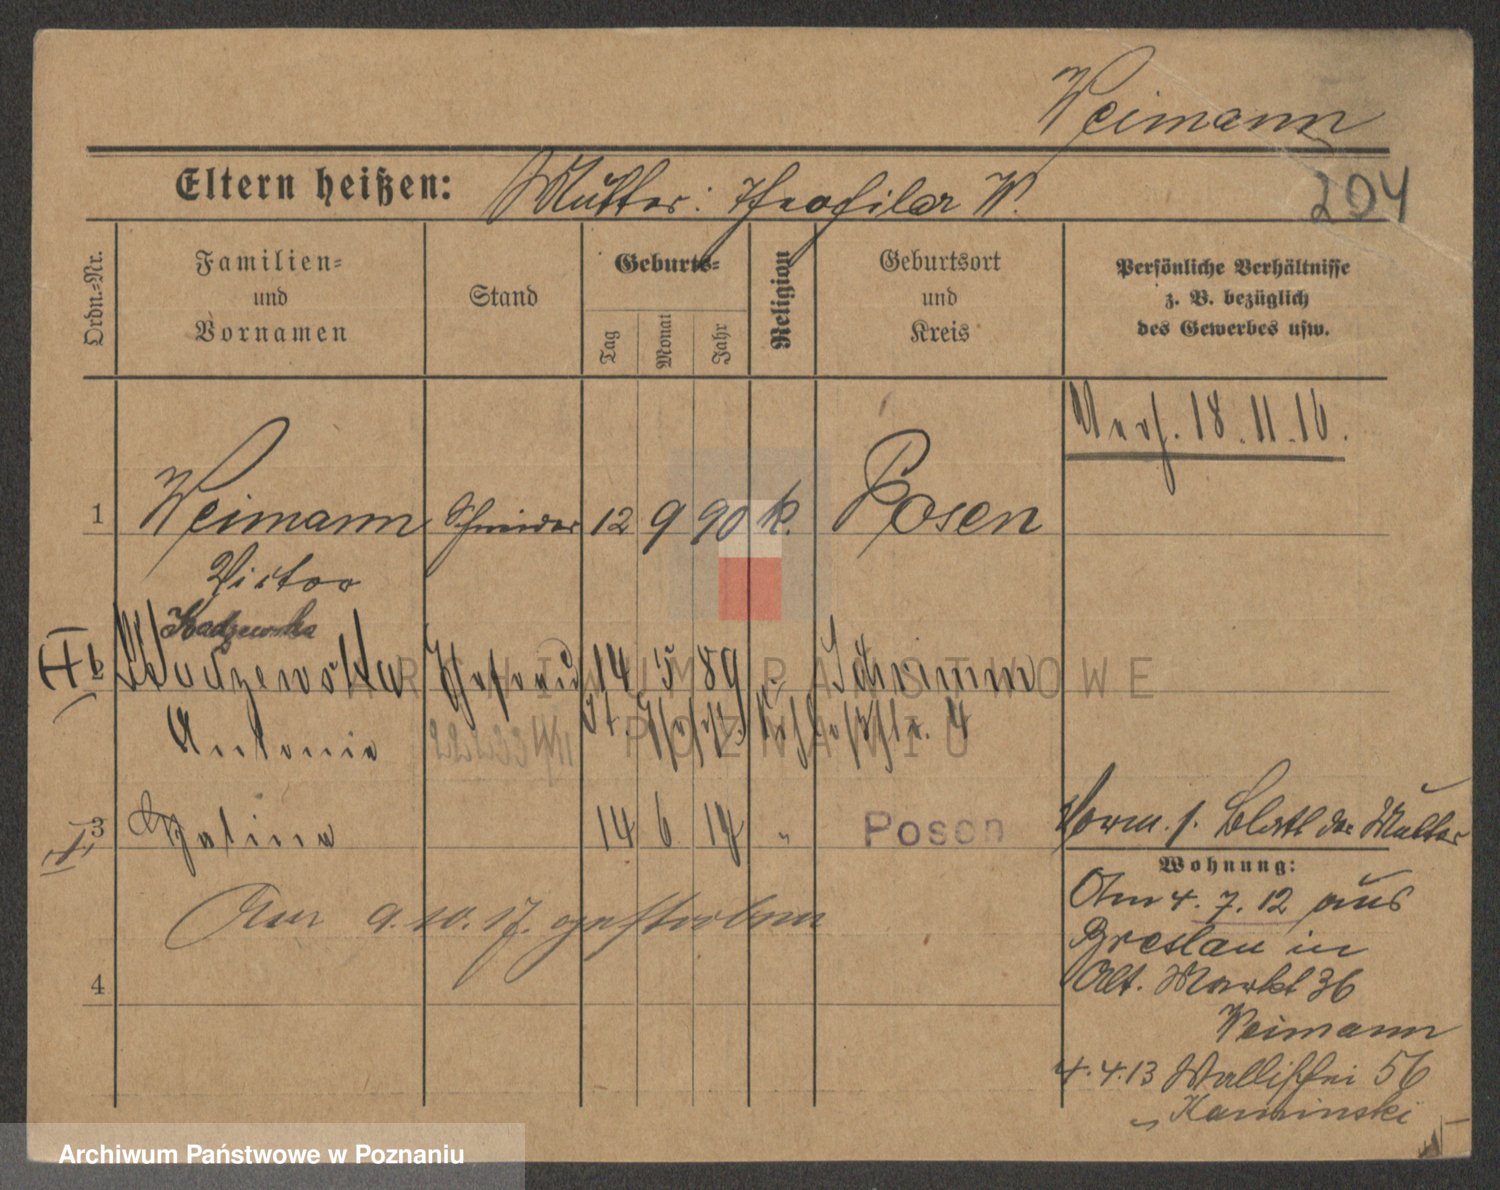 Weimann
Eltern heißen: Mutter: Theofila W.
204
Ordn.-Nr.
Familien-
und
Vornamen
Stand
Geburts-
Tag
Monat
Jahr
Religion
Geburtsort
und
Kreis
Persönliche Verhältnisse
z. B. bezüglich
des Gewerbes usw.
Verh. 18.11.16.
1 Weimann Schneider 12 9 90 k. Posen
Victor
Kadzewska
Ehefrau 14 5 89 Schrimm
Antonie
3 Halina 14 6 17 " Posen
Vorm. s. Blatt der Mutter
Am 9.10.17. gestorben
4
Wohnung:
Am 4.7.12 aus
Breslau in
Alt. Markt 36
Weimann
4.4.13 Wallischei 56
" Kaminski
ARCHIWUM PAŃSTWOWE
POZNANIU
Archiwum Państwowe w Poznaniu